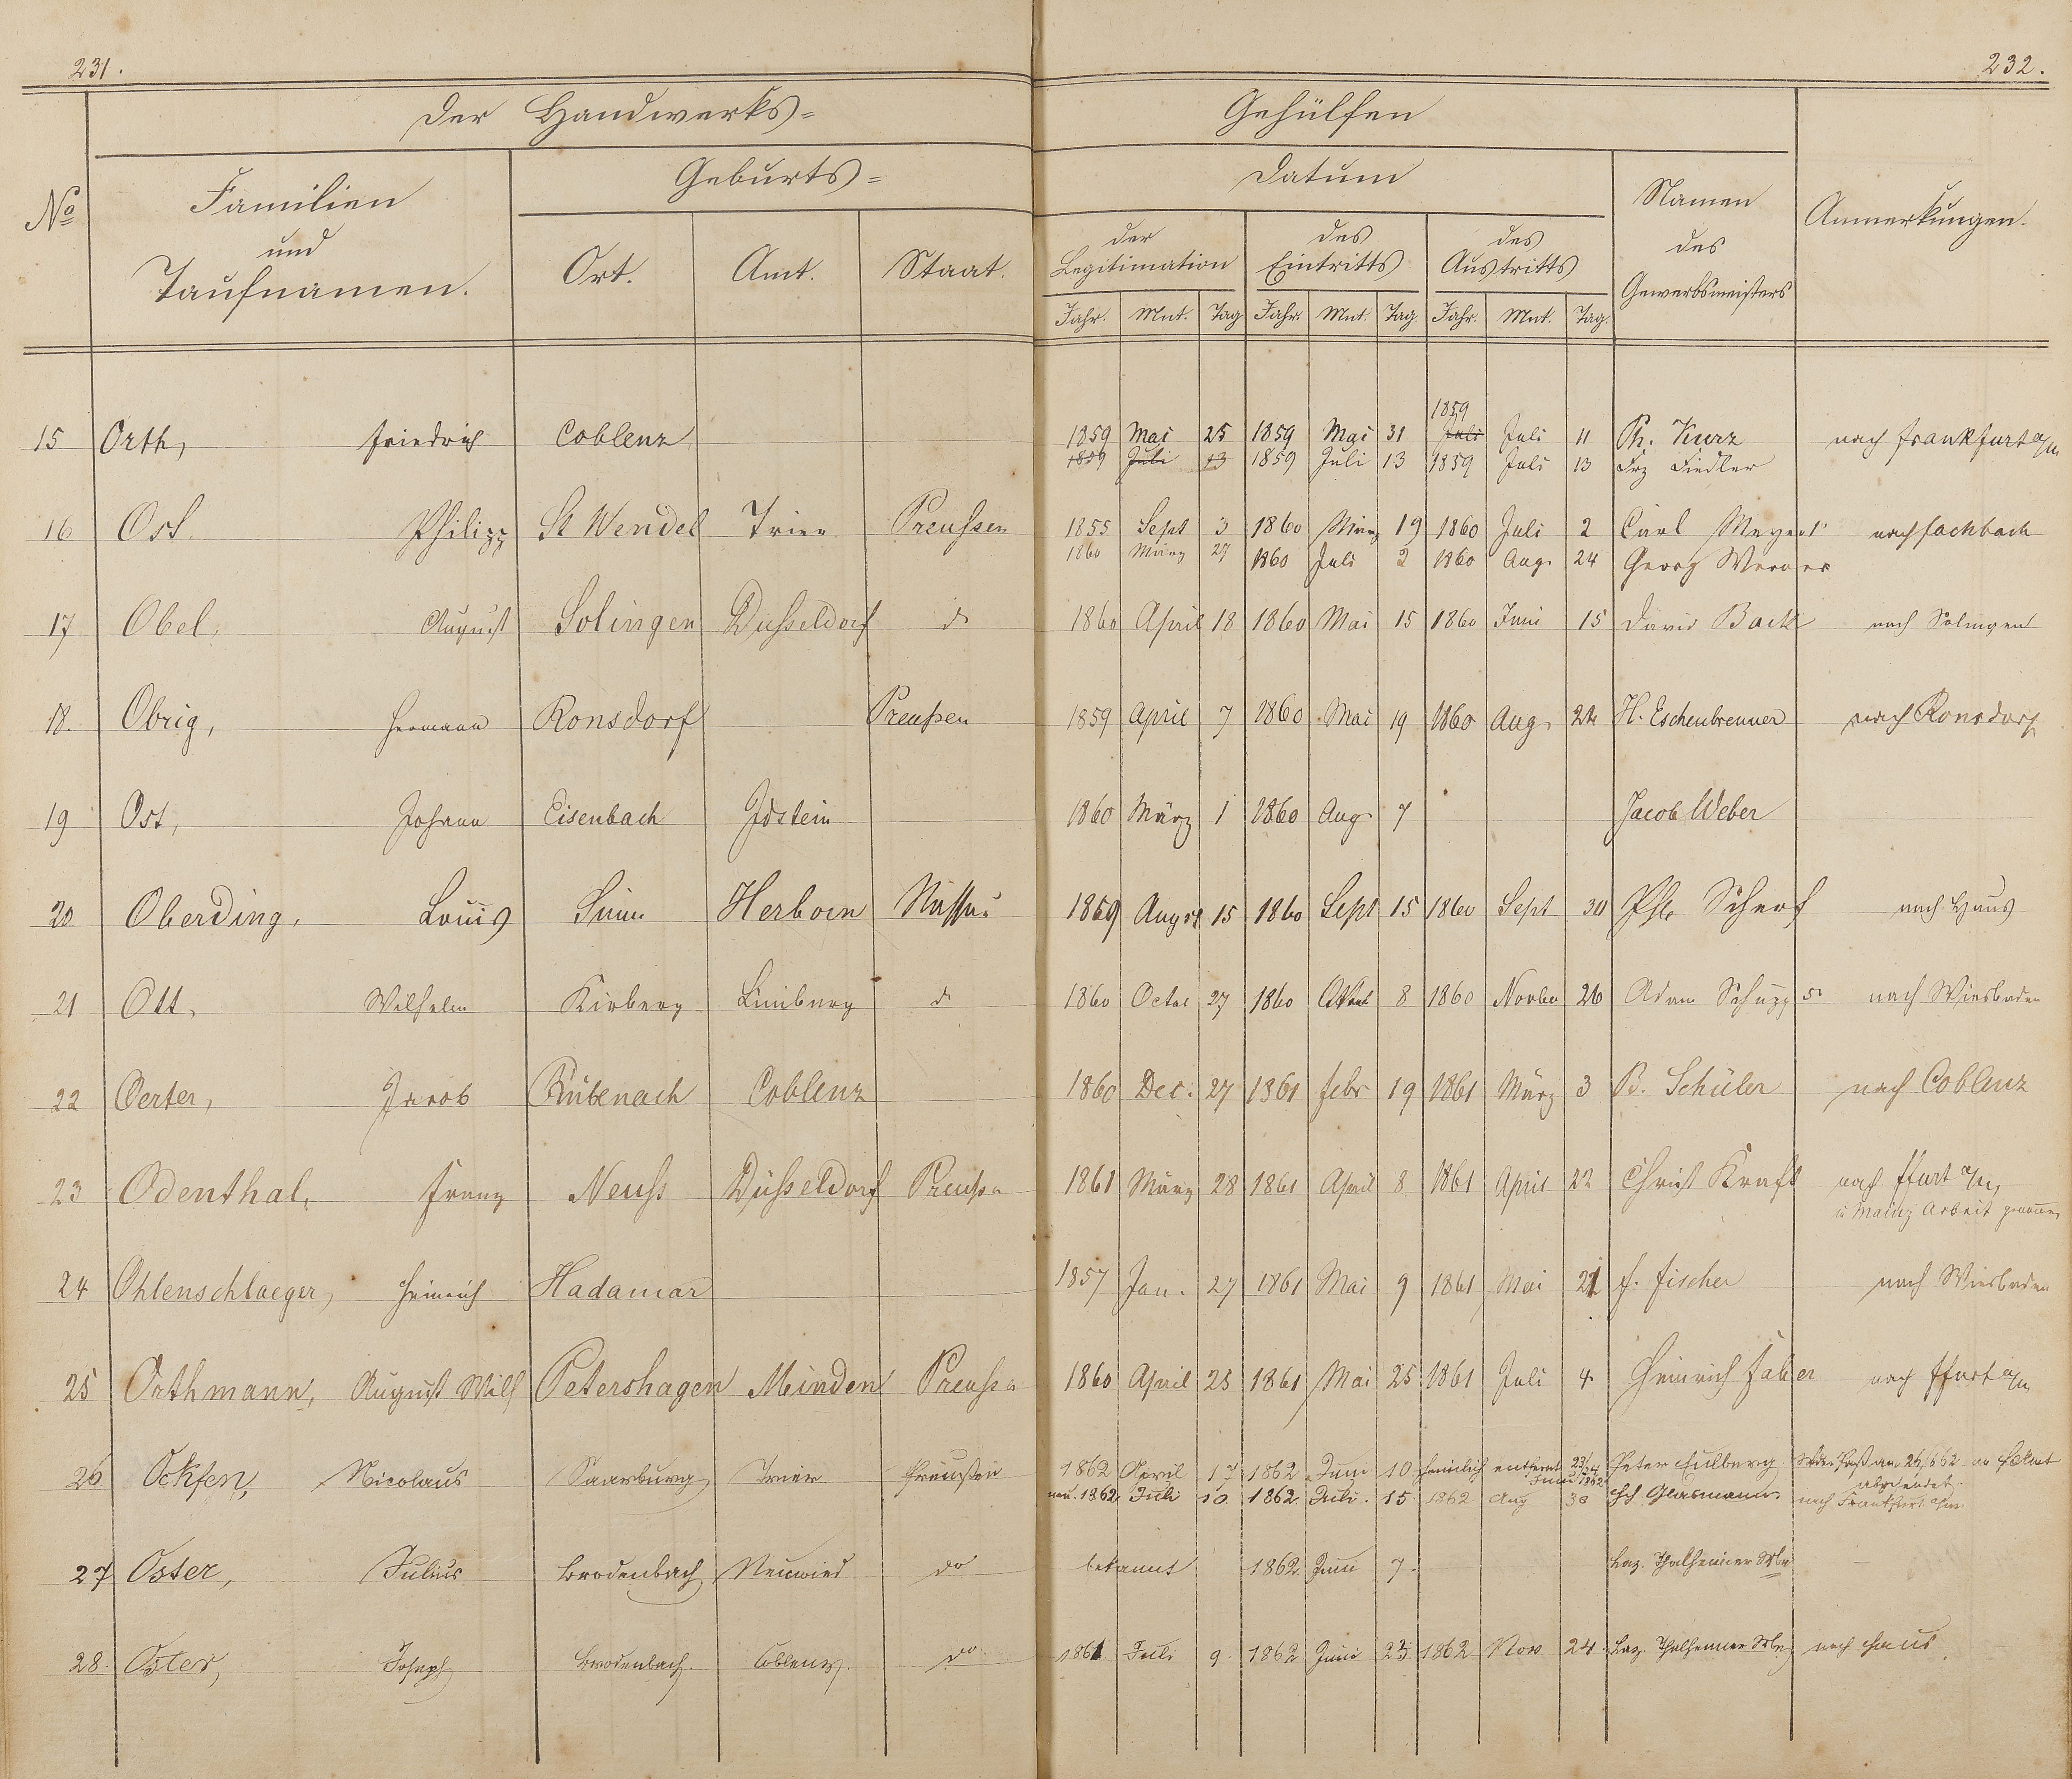 231.
232.
Der Handwerks= Gehülfen
No
Familien
und
Taufnamen.
Geburts=
Ort. Amt. Staat.
Datum
der
Legitimation
des
Eintritts
des
Austritts
Jahr. Mnt. Tag Jahr. Mnt. Tag Jahr. Mnt. Tag.
Namen
des
Gewerbsmeisters
Anmerkungen.
1859
15 Orth, Friedrich Coblenz 1859 Mai 25 1859 Mai 31 Juli Juli 11 Ph. Kurz nach Frankfurt a/m
1859 Juli 13 1859 Juli 13 1859 Juli 13 Frz Fiedler
16 Ost Philipp St Wendel Trier Preußen 1855 Sept 3 1860 März 19 1860 Juli 2 Carl Meyer nach Fachbach
1860 März 27 1860 Juli 2 1860 Aug. 24 Georg Werner
17 Obel, August Solingen Düsseldorf do 1860 April 18 1860 Mai 15 1860 Juni 15 David Back nach Solingen
18. Obrig, Hermann Ronsdorf Preußen 1859 April 7 1860 Mai 19 1860 Aug. 22 H. Eschenbrenner nach Ronsdorf
19 Ost, Johann Eisenbach Idstein 1860 März 1 1860 Aug. 7 Jacob Weber
20 Oberding, Louis Sinn Herborn Nassau 1859 August 15 1860 Sept 15 1860 Sept 30 Ph. Scherf nach Haus
21 Ott, Wilhelm Kirberg Limburg do 1860 Octbr 27 1860 8 1860 Novbr 26 Adam Schupp nach Wiesbaden
22 Oerter, Jacob Rübenach Coblenz 1860 Dec. 27 1861 Febr 19 1861 März 3 B. Schüler nach Coblenz
23 Odenthal, Franz Neuss Düsseldorf Preußen 1861 März 28 1861 April 8 1861 April 22 Christ Kraft nach ffurt a/m,
u Mainz Arbeit genommen
24 Ohlenschlaeger, Heinrich Hadamar 1857 Jan. 27 1861 Mai 9 1861 Mai 21 f. Fischer nach Wiesbaden
25 Orthmann, August Wilh Petershagen Minden Preußen 1860 April 23 1861 Mai 25 1861 Juli 4. Heinrich Faber nach ffurt a/m
26 Ockfen, Nicolaus Saarburg Trier Preußen 1862 April 17 1862 Juni 10 heimlich entfernt 23/24 Juni 1862 Peter Hulberg am 26/6 62 abgesendet
neu. 1862 Juli 10 1862. Juli. 15 1862 Aug 30 Hch Glasmann nach Frankfurt a/m
27 Oster, Julius Brodenbach Neuwied do bekannt 1862 Juni 7. Laz. Thalheimer
28. Oster, Joseph Brodenbach. Coblenz. do 1861 Juli 9. 1862 Juni 23. 1862 Nov 24. Laz. Thalheimer nach Haus